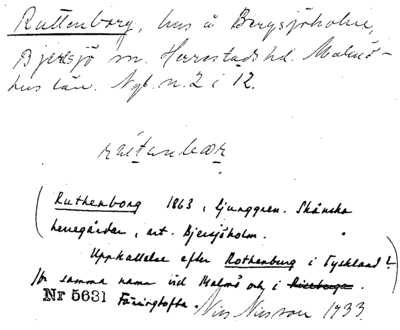 Ruttenborg, hus å Bergsjöholm,
Bjersjö sn. Herrestads hd. Malmö-
hus län. Nyb. n. 2 i 12.
(Ruthenborg 1863, Ljunggren. Skånska
herregårdar, art. Bjersjöholm.
Uppkallelse efter Rothenburg i Tyskland?
Jfr samma namn vid Malmö och i
Nr 5631 Färingtofta. Nils Nilsson 1933.